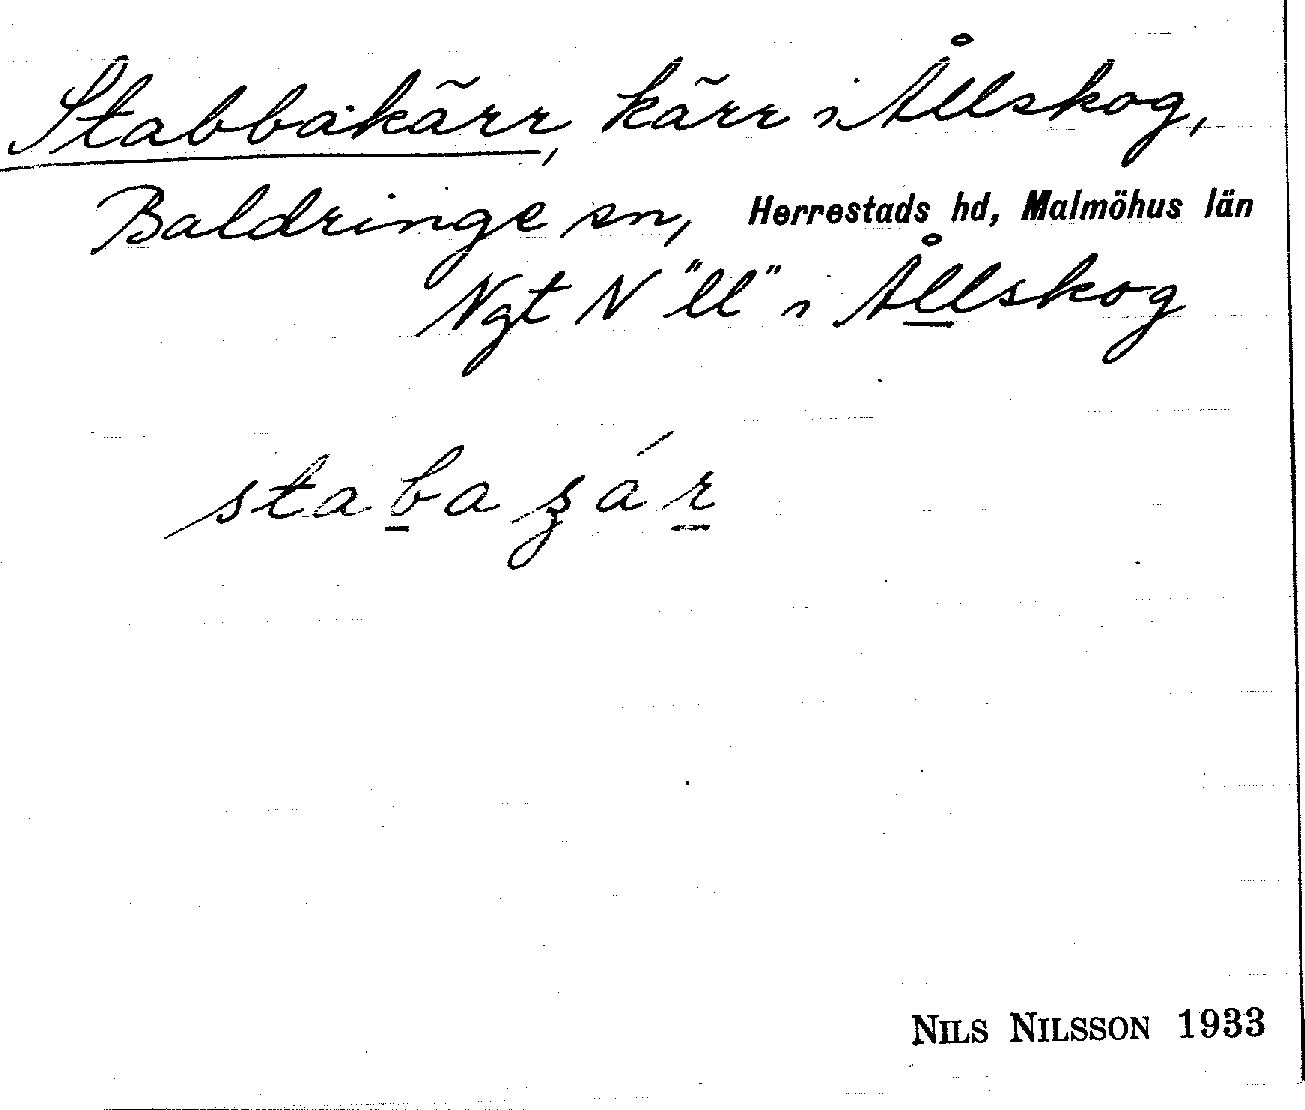 Stabbakärr, kärr i Ållskog,
Baldringe sn, Herrestads hd, Malmöhus län
Ngt N "ll" i Ållskog
NILS NILSSON 1933